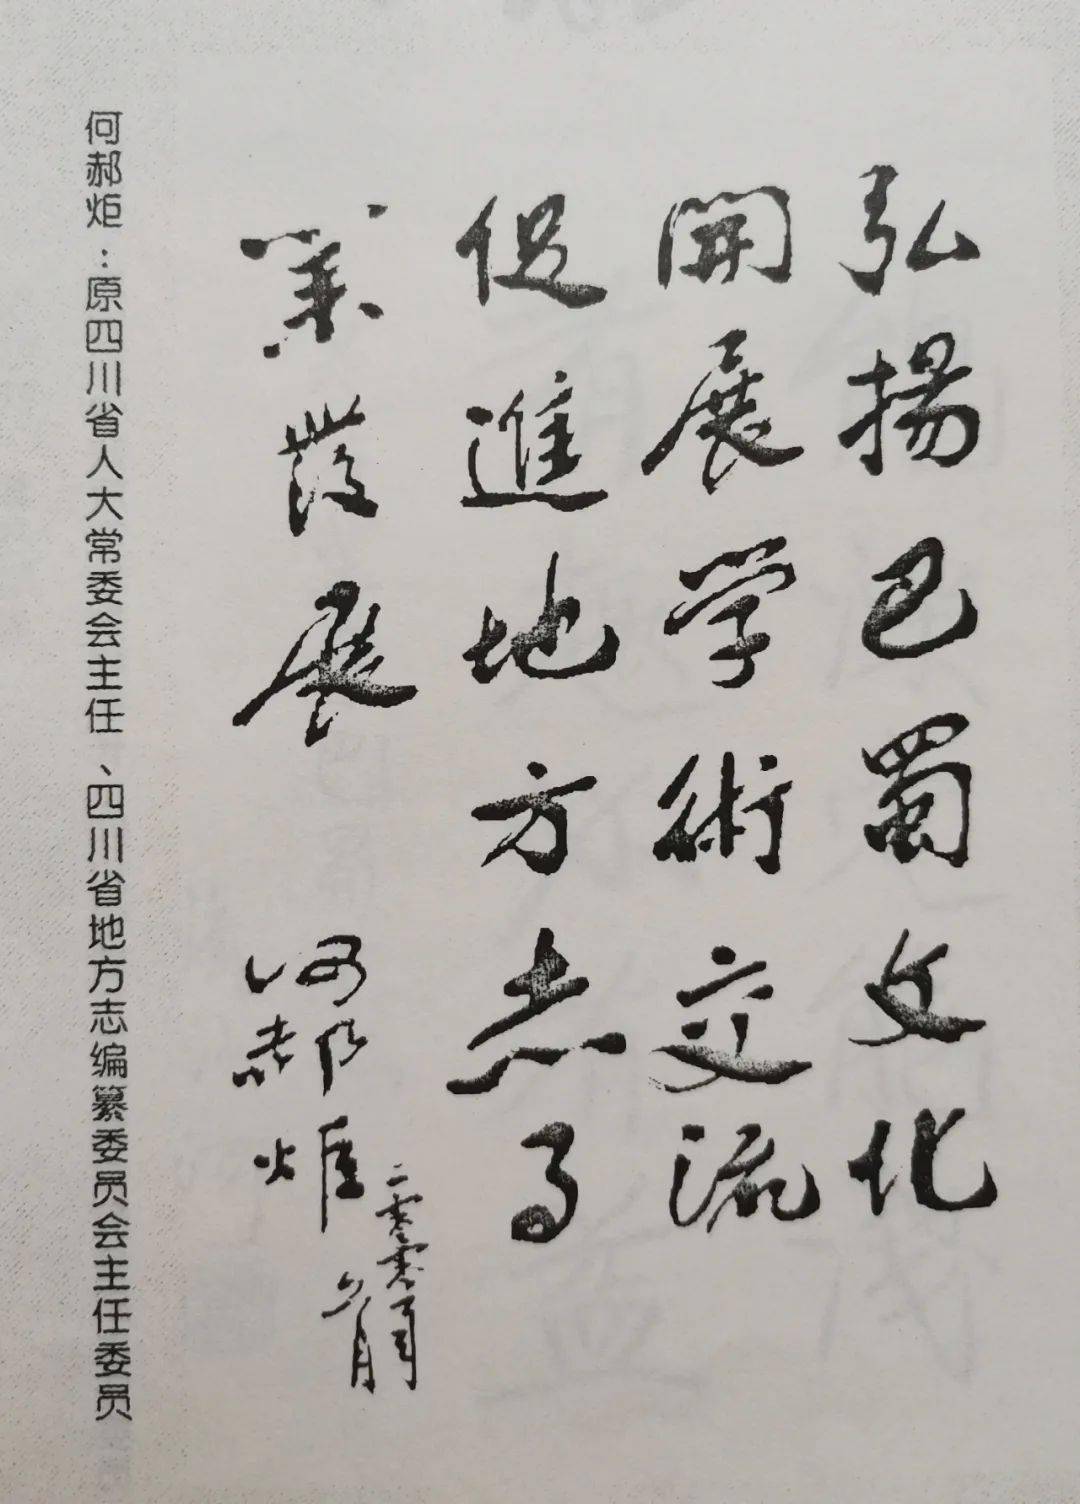 弘揚巴蜀文化
開展学術交流
促進地方志事
業發展
何郝炬
二零零
月
何郝炬：原四川省人大常委会主任、四川省地方志编纂委员会主任委员